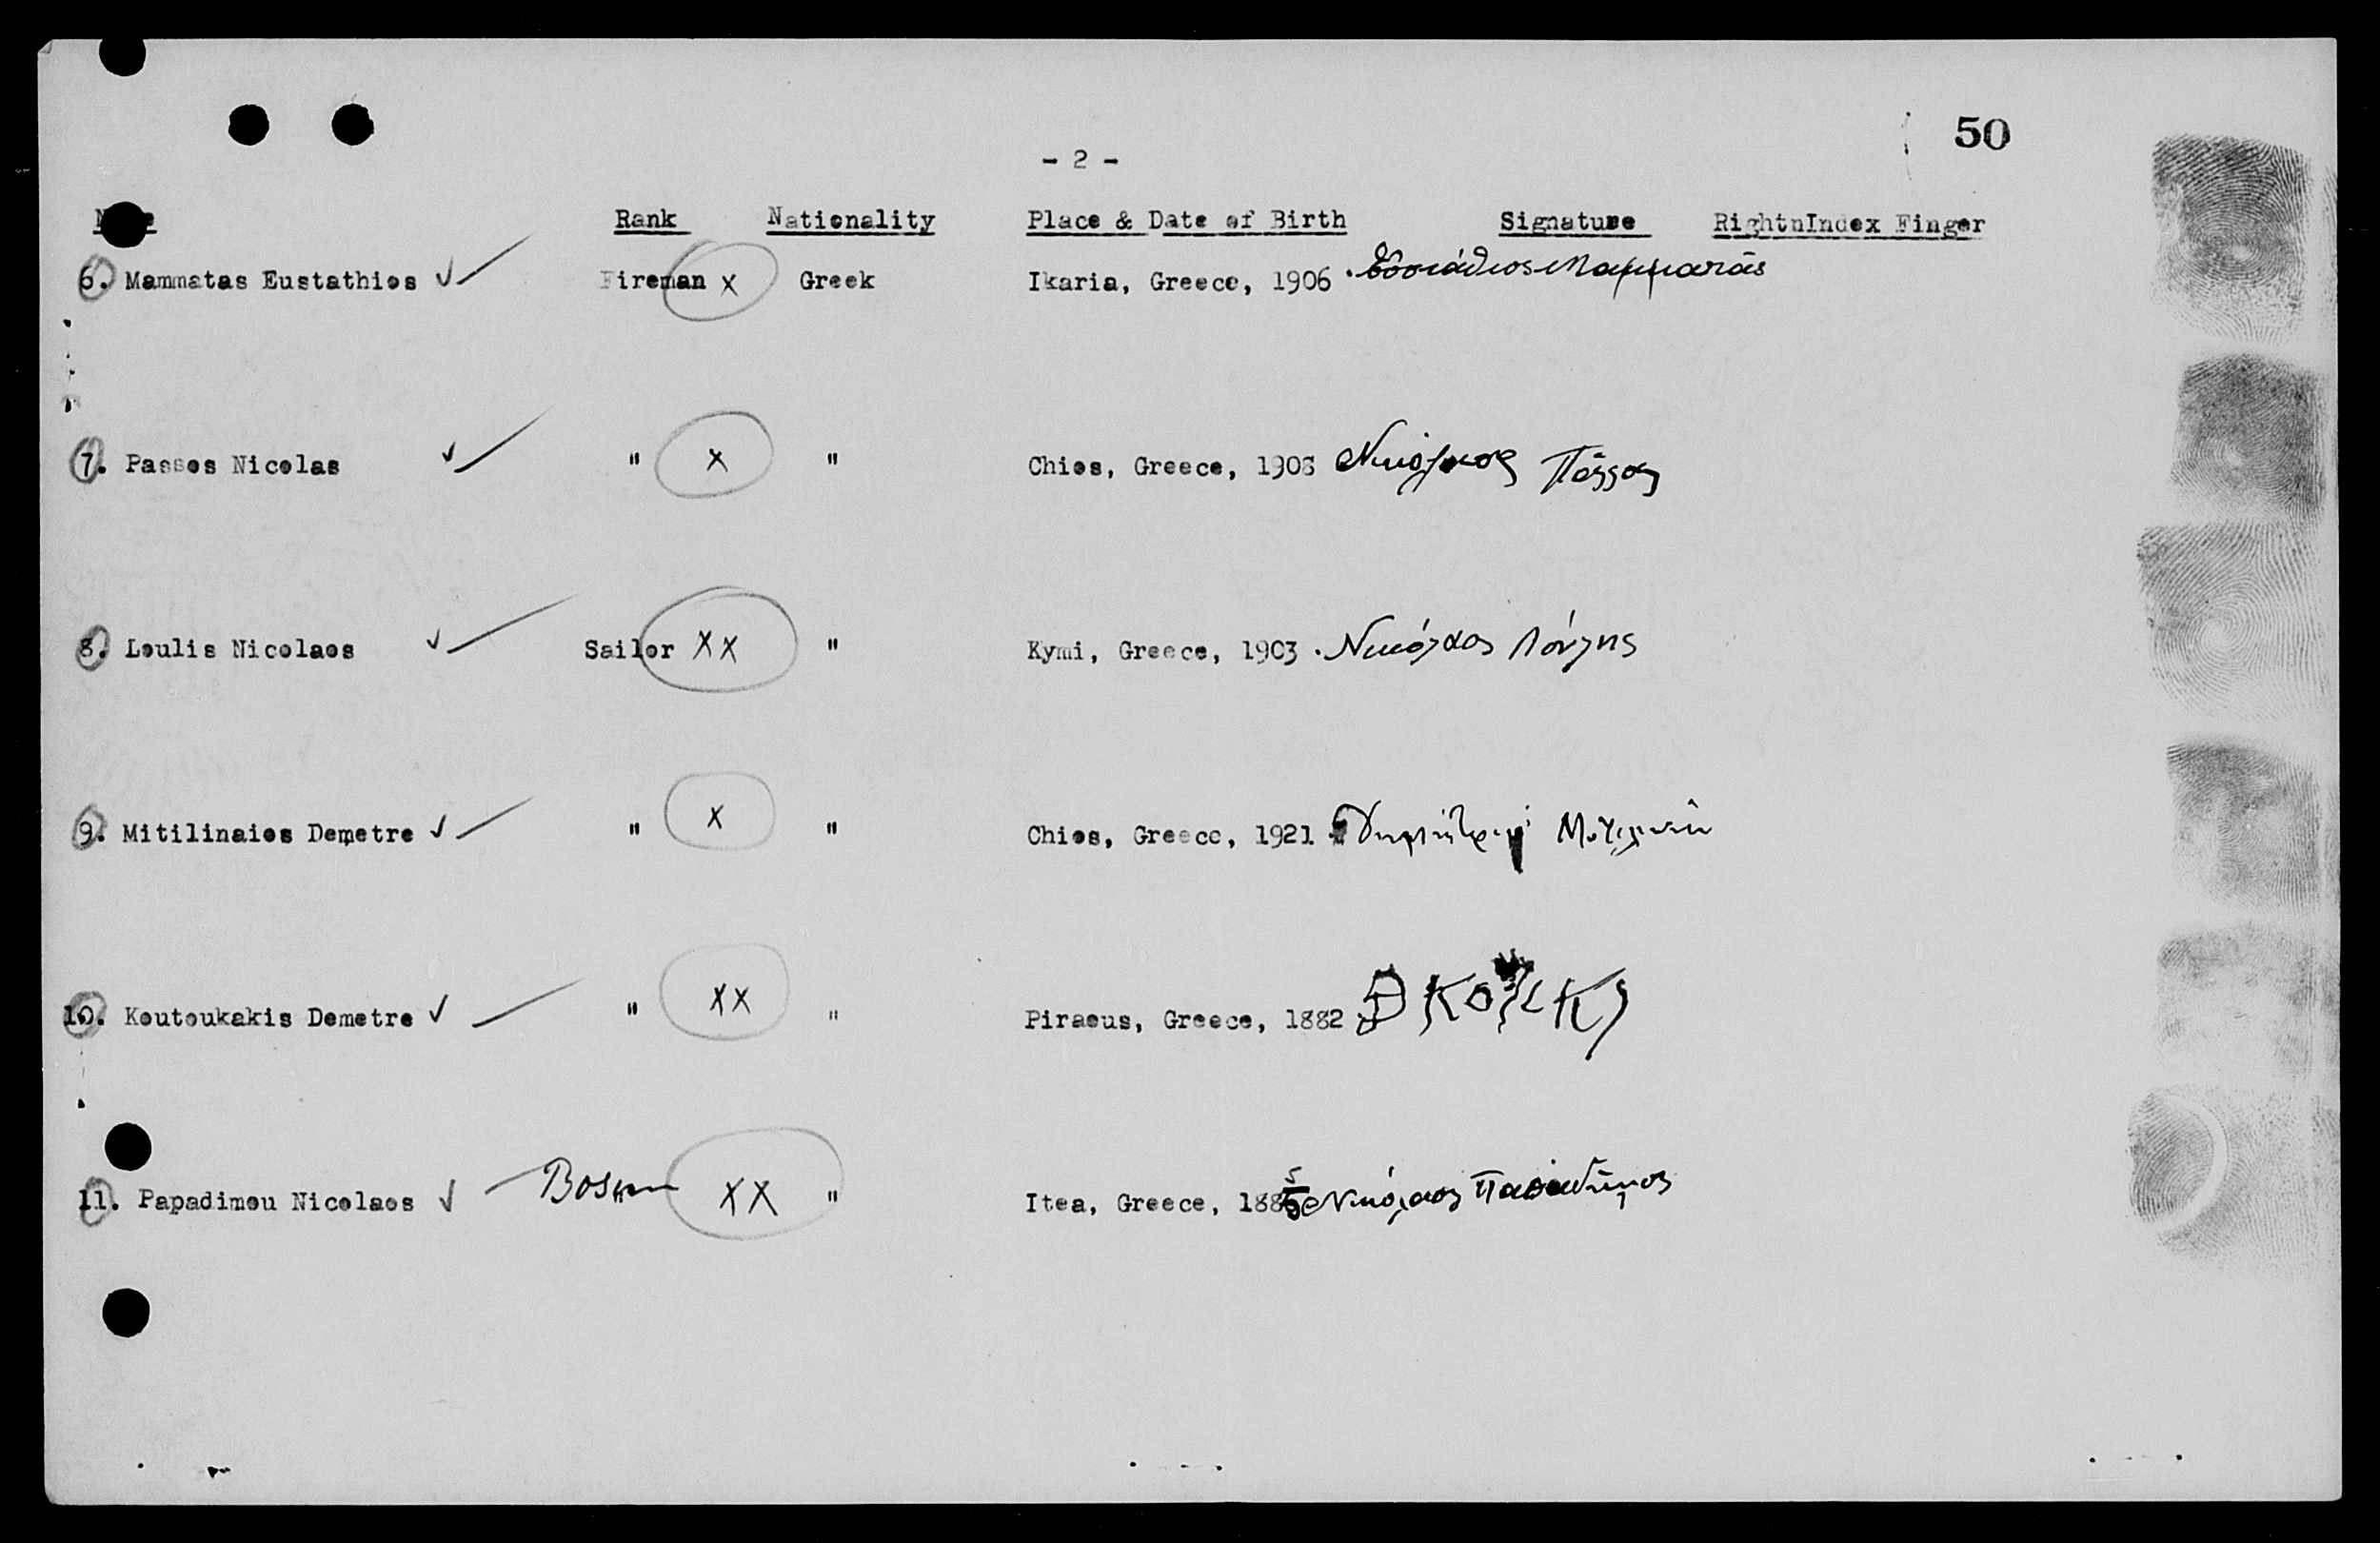 50
- 2 -
Rank Nationality Place & Date of Birth Signature RightnIndex Finger
6. Mammatas Eustathios ✓ Fireman x Greek Ikaria, Greece, 1906 Εὐστάθιος Μαμματᾶς
7. Passos Nicolas ✓ " x " Chios, Greece, 1908 Νικόλαος Πάσσος
8. Loulis Nicolaos ✓ Sailor XX " Kymi, Greece, 1903 Νικόλαος Λούλης
9. Mitilinaios Demetre ✓ " X " Chios, Greece, 1921
10. Koutoukakis Demetre ✓ " XX " Piraeus, Greece, 1882
11. Papadimou Nicolaos ✓ Bosun XX " Itea, Greece, 1885 Νικόλαος Παπαδῆμος